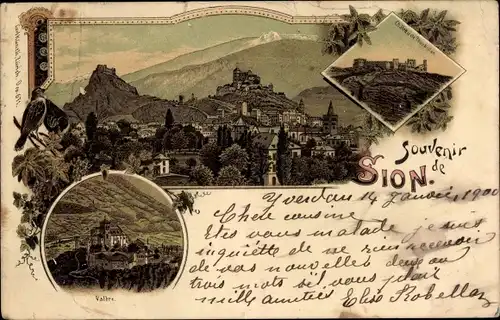 Souvenir
de
SION.
Valère.
Yverdon 14 Janvier, 1900
Chère cousine
Etes vous malade je suis
inquiète de ne rien recevoir
de vos nouvelles deux ou
trois mots s'il vous plaît
mille amitiés Elise Robellaz